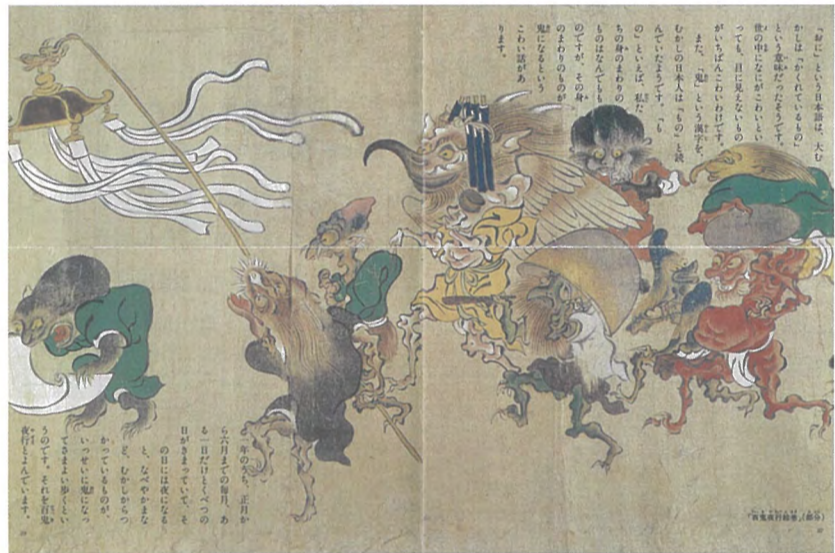 「おに」という日本語は、大む
かしは「かくれているもの」
という意味だったそうです。
世の中になにがこわいとい
っても、目に見えないもの
がいちばんこわいわけです。
また、「鬼」という漢字を、
むかしの日本人は「もの」と読
んでいたようです。「も
の」といえば、私た
ちの身のまわりの
ものはなんでももも
のですが、その身
のまわりのものが
鬼になるという
こわい話があ
ります。
一年のうち、正月か
ら六月までの毎月、あ
る一日だけとくべつの
日がきまっていて、そ
の日には夜になる
と、なべやかまな
ど、むかしからつ
かっているものが、
いっせいに鬼になっ
てさまよい歩くとい
うのです。それを百鬼
夜行とよんでいます。
「百鬼夜行絵巻」(部分)